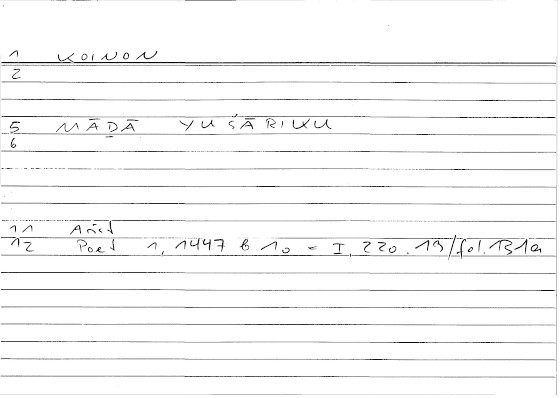 1 KOINON
2
5 MĀḎĀ YUŠĀRIKU
6
11 Arist
12 Poet 1, 1447 b 10 = I, 220.19/fol.131a